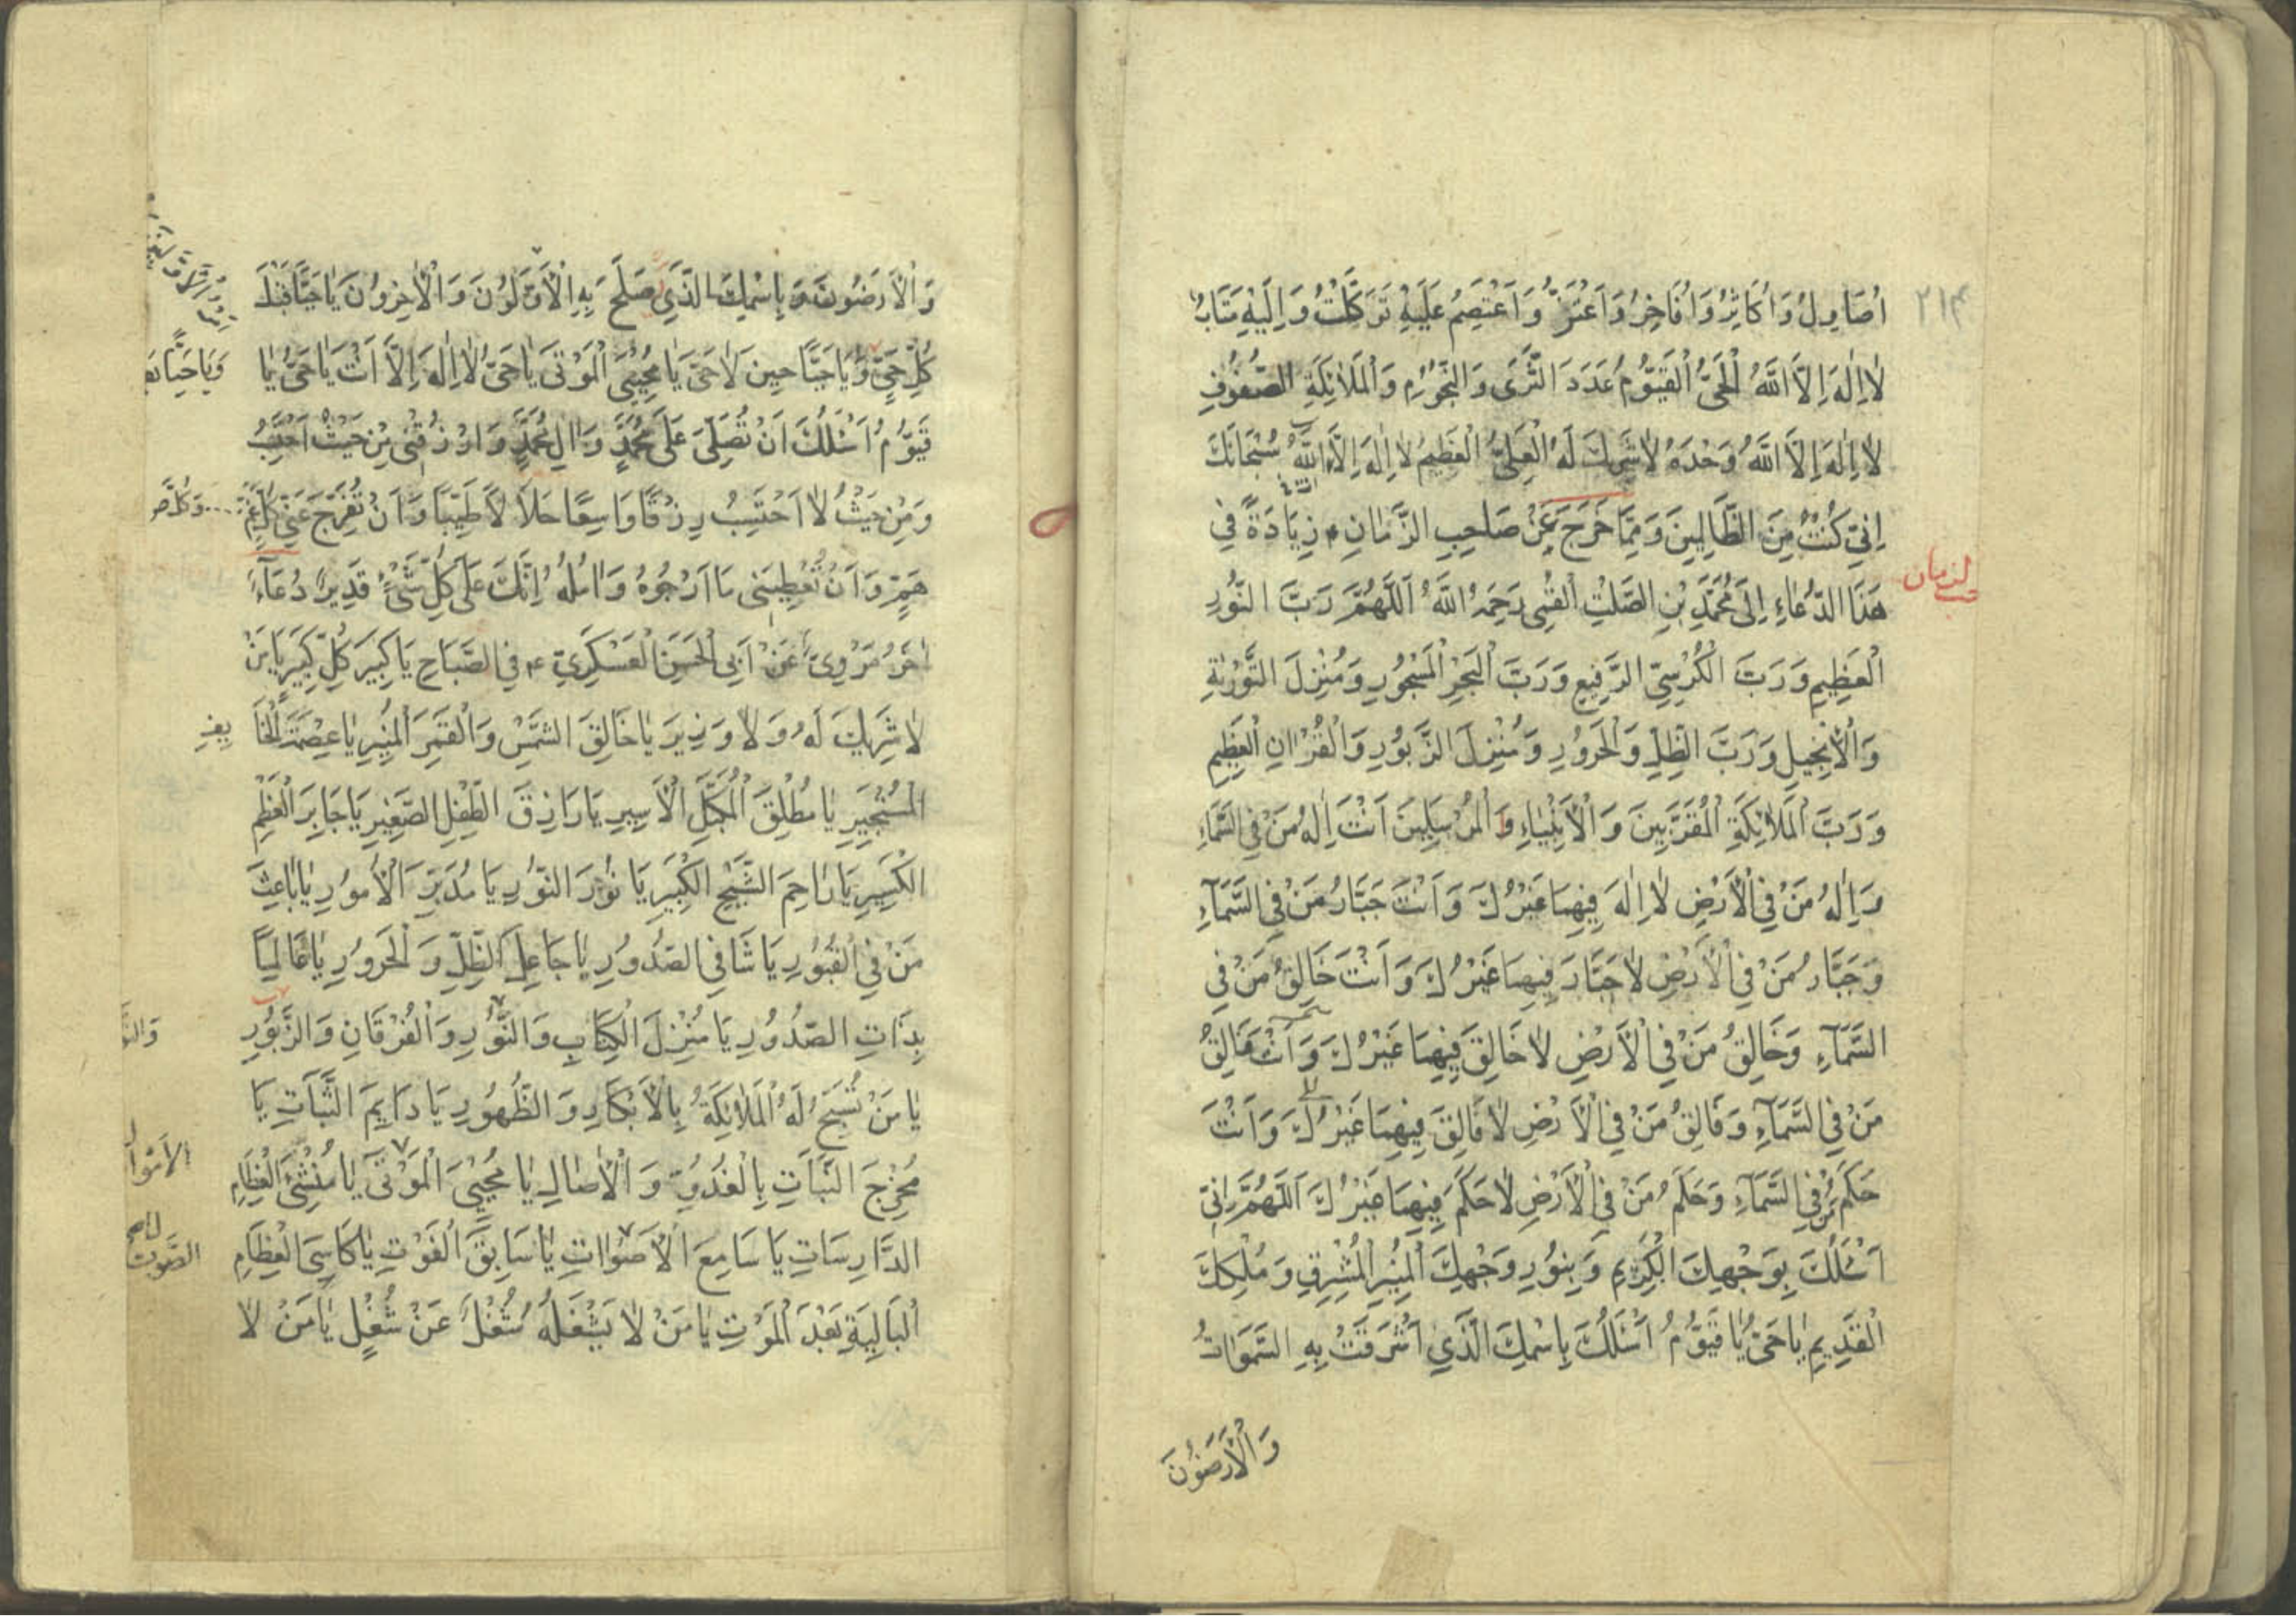 ٢١٤
اُصَاوِلُ وَاُكَاثِرُ وَاُفَاخِرُ وَاَعْتَزُّ وَاَعْتَصِمُ عَلَيْهِ تَوَكَّلْتُ وَاِلَيْهِ مَتَابُ
لَا اِلٰهَ اِلَّا اللّٰهُ الْحَيُّ الْقَيُّومُ عَدَدَ الثَّرٰى وَالنُّجُوْمِ وَالْمَلَائِكَةِ الصُّفُوْفِ
لَا اِلٰهَ اِلَّا اللّٰهُ وَحْدَهُ لَا شَرِيكَ لَهُ الْعَلِيُّ الْعَظِيمُ لَا اِلٰهَ اِلَّا اللّٰهُ سُبْحَانَكَ
اِنِّي كُنْتُ مِنَ الظَّالِمِينَ وَمِمَّا خَرَجَ عَنْ صَاحِبِ الزَّمَانِ ع زِيَادَةً فِي
هَذَا الدُّعَاءِ اِلَى مُحَمَّدِ بْنِ الصَّلْتِ الْقُمِّي رَحِمَهُ اللّٰهُ اَللّٰهُمَّ رَبَّ النُّورِ
الْعَظِيمِ وَرَبَّ الْكُرْسِيِّ الرَّفِيعِ وَرَبَّ الْبَحْرِ الْمَسْجُورِ وَمُنْزِلَ التَّوْرٰيةِ
وَالْاِنْجِيلِ وَرَبَّ الظِّلِّ وَالْحَرُورِ وَمُنْزِلَ الزَّبُورِ وَالْقُرْاٰنِ الْعَظِيمِ
وَرَبَّ الْمَلَائِكَةِ الْمُقَرَّبِينَ وَالْاَنْبِيَاءِ وَالْمُرْسَلِينَ اَنْتَ اِلٰهُ مَنْ فِي السَّمَاءِ
وَاِلٰهُ مَنْ فِي الْاَرْضِ لَا اِلٰهَ فِيهِمَا غَيْرُكَ وَاَنْتَ جَبَّارُ مَنْ فِي السَّمَآءِ
وَجَبَّارُ مَنْ فِي الْاَرْضِ لَا جَبَّارَ فِيهِمَا غَيْرُكَ وَاَنْتَ خَالِقُ مَنْ فِي
السَّمَآءِ وَخَالِقُ مَنْ فِي الْاَرْضِ لَا خَالِقَ فِيهِمَا غَيْرُكَ وَاَنْتَ فَالِقُ
مَنْ فِي السَّمَآءِ وَفَالِقُ مَنْ فِي الْاَرْضِ لَا فَالِقَ فِيهِمَا غَيْرُكَ وَاَنْتَ
حَكَمُ مَنْ فِي السَّمَآءِ وَحَكَمُ مَنْ فِي الْاَرْضِ لَا حَكَمَ فِيهِمَا غَيْرُكَ اَللّٰهُمَّ اِنِّي
اَسْئَلُكَ بِوَجْهِكَ الْكَرِيمِ وَبِنُورِ وَجْهِكَ الْمُنِيرِ الْمُشْرِقِ وَمُلْكِكَ
الْقَدِيمِ يَا حَيُّ يَا قَيُّومُ اَسْئَلُكَ بِاسْمِكَ الَّذِي اَشْرَقَتْ بِهِ السَّمٰوَاتُ
وَالْاَرَضُوْنَ
وَالْاَرَضُونَ وَبِاسْمِكَ الَّذِي صَلَحَ بِهِ الْاَوَّلُوْنَ وَالْاٰخِرُونَ يَا حَيًّا قَبْلَ
كُلِّ حَيٍّ وَيَا حَيًّا حِينَ لَا حَيَّ يَا مُحْيِيَ الْمَوْتٰى يَا حَيُّ لَا اِلٰهَ اِلَّا اَنْتَ يَا حَيُّ يَا
قَيُّومُ اَسْئَلُكَ اَنْ تُصَلِّيَ عَلَى مُحَمَّدٍ وَاٰلِ مُحَمَّدٍ وَارْزُقْنِي مِنْ حَيْثُ اَحْتَسِبُ
وَمِنْ حَيْثُ لَا اَحْتَسِبُ رِزْقًا وَاسِعًا حَلَالًا طَيِّبًا وَاَنْ تُفَرِّجَ عَنِّي كُلَّ غَمٍّ
هَمٍّ وَاَنْ تُعْطِيَنِي مَا اَرْجُوهُ وَاٰمُلُهُ اِنَّكَ عَلٰى كُلِّ شَيْءٍ قَدِيرٌ دُعَآءٌ
اٰخَرُ مَرْوِيٌّ عَنْ اَبِي الْحَسَنِ الْعَسْكَرِيِّ ع فِي الصَّبَاحِ يَا كَبِيرَ كُلِّ كَبِيرٍ يَا مَنْ
لَا شَرِيكَ لَهُ وَلَا وَزِيرَ يَا خَالِقَ الشَّمْسِ وَالْقَمَرِ الْمُنِيرِ يَا عِصْمَةَ الْخَا
يِفِ
الْمُسْتَجِيرِ يَا مُطْلِقَ الْمُكَبَّلِ الْاَسِيرِ يَا رَازِقَ الطِّفْلِ الصَّغِيرِ يَا جَابِرَ الْعَظْمِ
الْكَسِيرِ يَا رَاحِمَ الشَّيْخِ الْكَبِيرِ يَا نُوْرَ النُّورِ يَا مُدَبِّرَ الْاُمُورِ يَا بَاعِثَ
مَنْ فِي الْقُبُورِ يَا شَافِيَ الصُّدُورِ يَا جَاعِلَ الظِّلِّ وَالْحَرُورِ يَا عَالِمًا
بِذَاتِ الصُّدُورِ يَا مُنْزِلَ الْكِتَابِ وَالنُّورِ وَالْفُرْقَانِ وَالزَّبُورِ
يَا مَنْ تُسَبِّحُ لَهُ الْمَلَائِكَةُ بِالْاَبْكَارِ وَالظُّهُورِ يَا دَايِمَ الثَّبَاتِ يَا
مُخْرِجَ النَّبَاتِ بِالْغُدُوِّ وَالْاٰصَالِ يَا مُحْيِيَ الْمَوْتٰى يَا مُنْشِئَ الْعِظَامِ
الدَّارِسَاتِ يَا سَامِعَ الْاَصْوَاتِ يَا سَابِقَ الْفَوْتِ يَا كَاسِيَ الْعِظَامِ
الْبَالِيَةِ بَعْدَ الْمَوْتِ يَا مَنْ لَا يَشْغَلُهُ شُغْلٌ عَنْ شُغْلٍ يَا مَنْ لَا
الصَّوْت